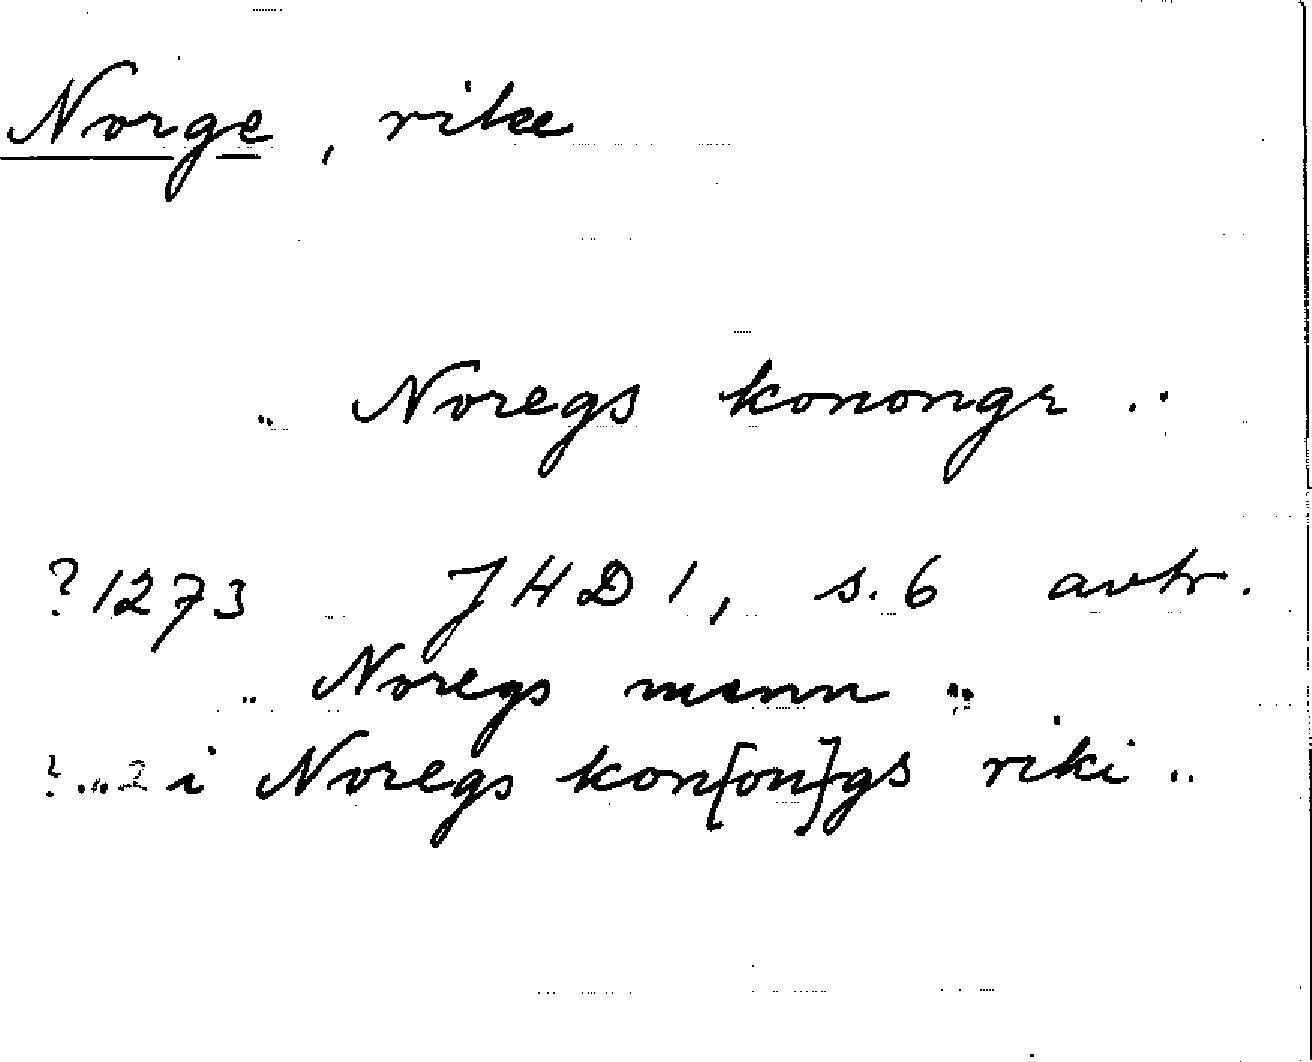 Norge, rike
.. Noregs konongr ..
?1273 JHD 1, s. 6 avtr.
.. Noregs menn ..
?...2 i Noregs kon[on]gs riki ..